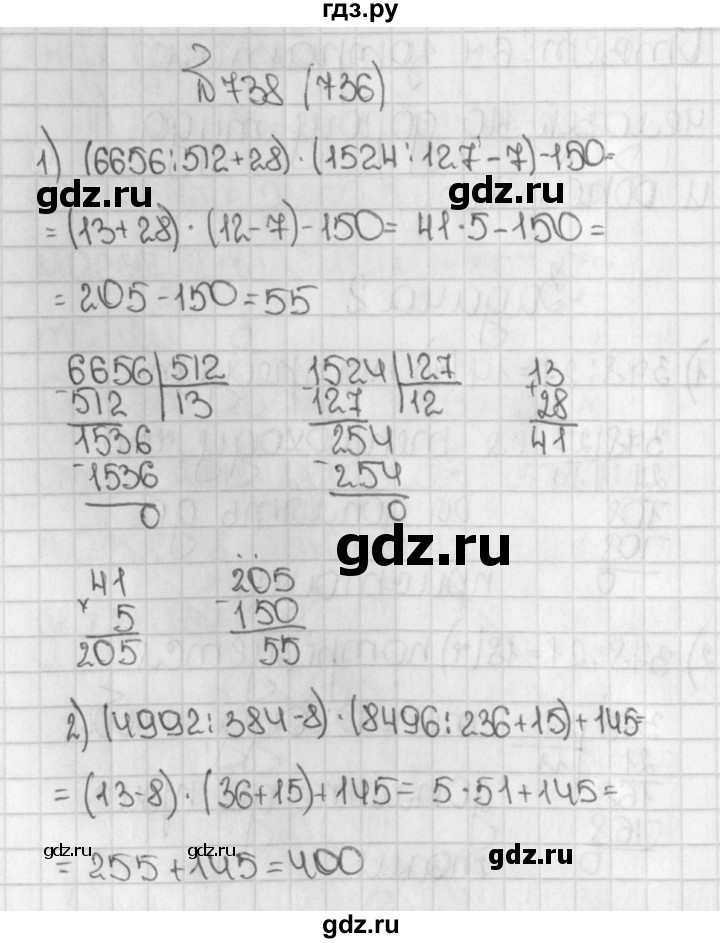 гдз.ру
№738 (736)
1) (6656:512+28)·(1524:127-7)-150=
gdz.ru gdz.ru
=(13+28)·(12-7)-150= 41·5-150=
=205-150=55
6656 512 1524 127 13
-512 13 -127 12 +28
1536 254 41
-1536 -254
0 0
gdz.ru
41 205
×5 -150
205 55
2) (4992:384-8)·(8496:236+15)+145=
=(13-8)·(36+15)+145= 5·51+145=
gdz.ru gdz.ru gdz.ru
=255+145=400
gdz.ru